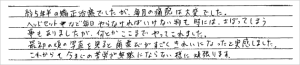 約5年半の矯正治療でしたが、毎月の通院は大変でした。
ヘッドギアなど毎日やらなければいけない物も時には、さぼってしまう
事もありましたが、なんとかここまでやってこれました。
最初の頃の写真を見ると歯並びがすごくきれいになったと実感しました。
これからも今までの苦労が無駄にならない様に頑張ります。